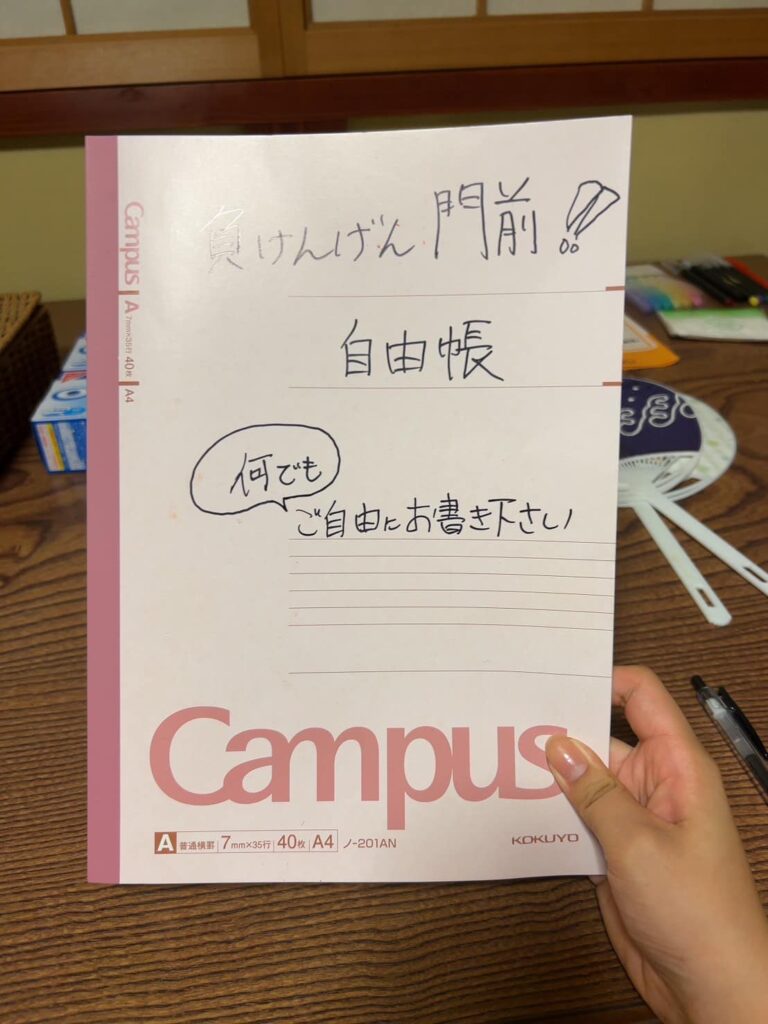 負けんげん門前!!
自由帳
何でも
ご自由にお書き下さい
Campus
A 普通横罫 7mm×35行 40枚 A4 ノ-201AN
KOKUYO
Campus A 7mm×35行 40枚 A4